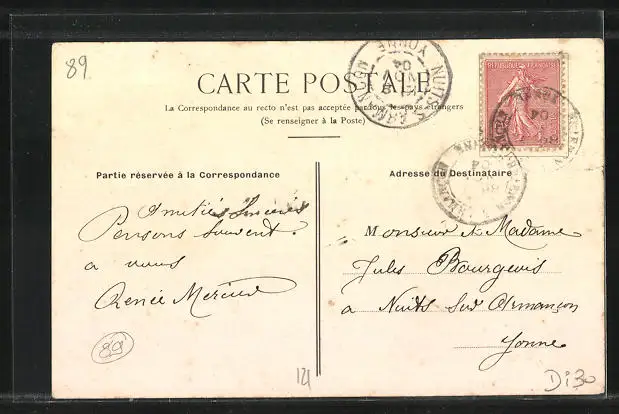 89
CARTE POSTALE
La Correspondance au recto n'est pas acceptée par tous les pays étrangers
(Se renseigner à la Poste)
REPUBLIQUE FRANÇAISE
NUITS-S-ARMANÇON
YONNE
04
Partie réservée à la Correspondance
Amitiés Sincères
Pensons Souvent
a vous
Renée Mercier
89
121
Adresse du Destinataire
Monsieur et Madame
Jules Bourgeois
a Nuits Sur Armançon
Yonne
Di30